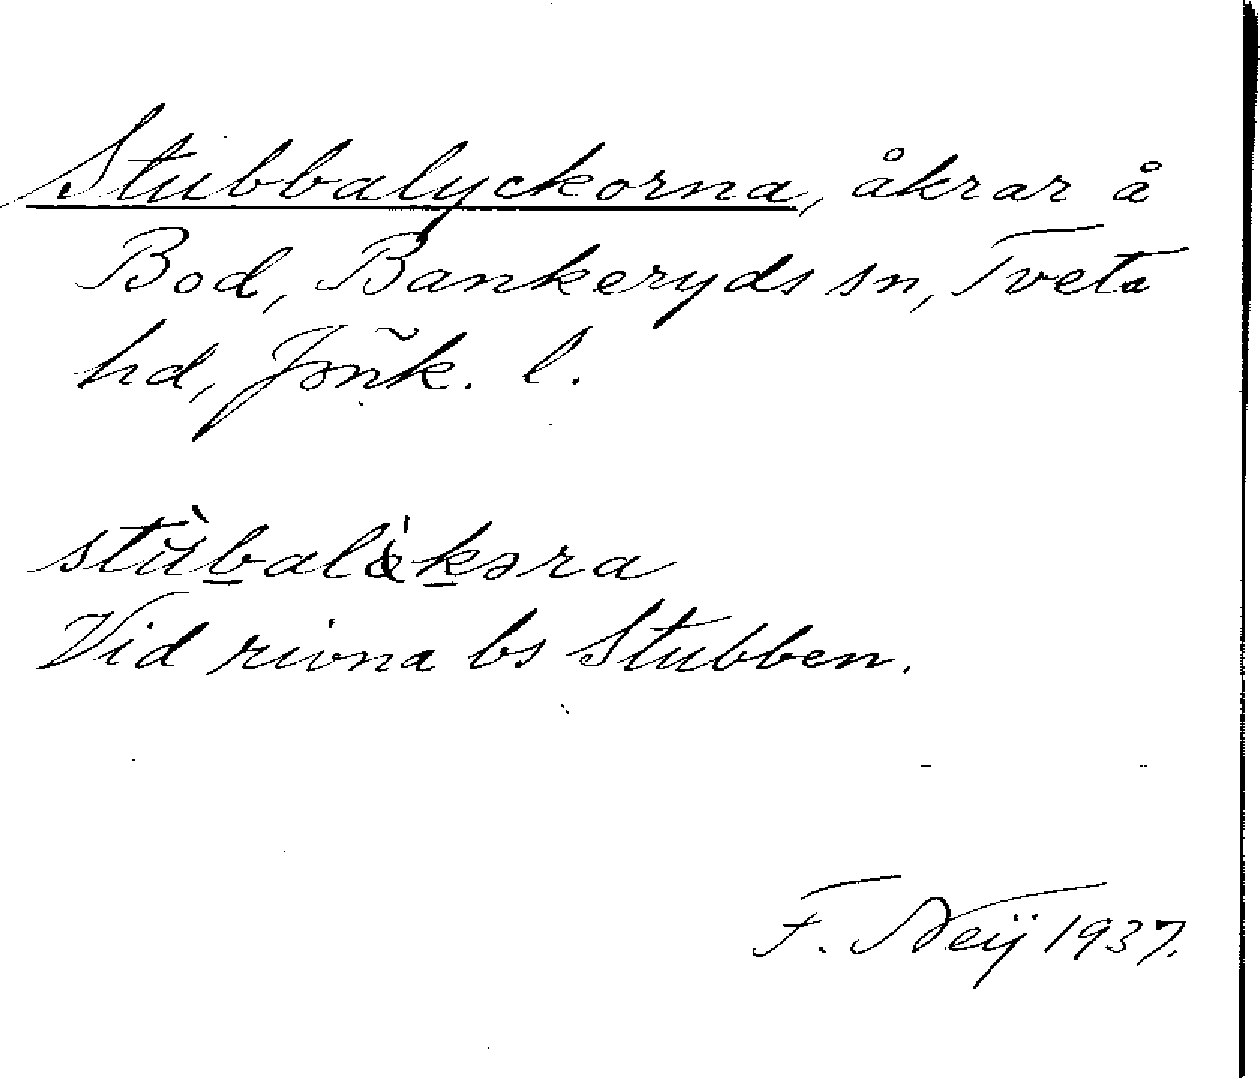 Stubbalyckorna, åkrar å
Bod, Bankeryds sn, Tveta
hd, Jönk. l.
stu̇̀b̲alö̀k̲əra
Vid rivna bs Stubben.
F. Neij 1937.